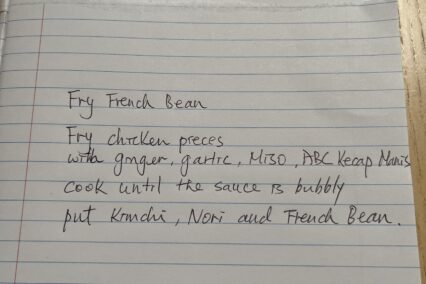 Fry French Bean
Fry chicken pieces
with ginger, garlic, MISO, ABC Kecap Manis
Cook until the sauce is bubbly
put Kimchi, Nori and French Bean.